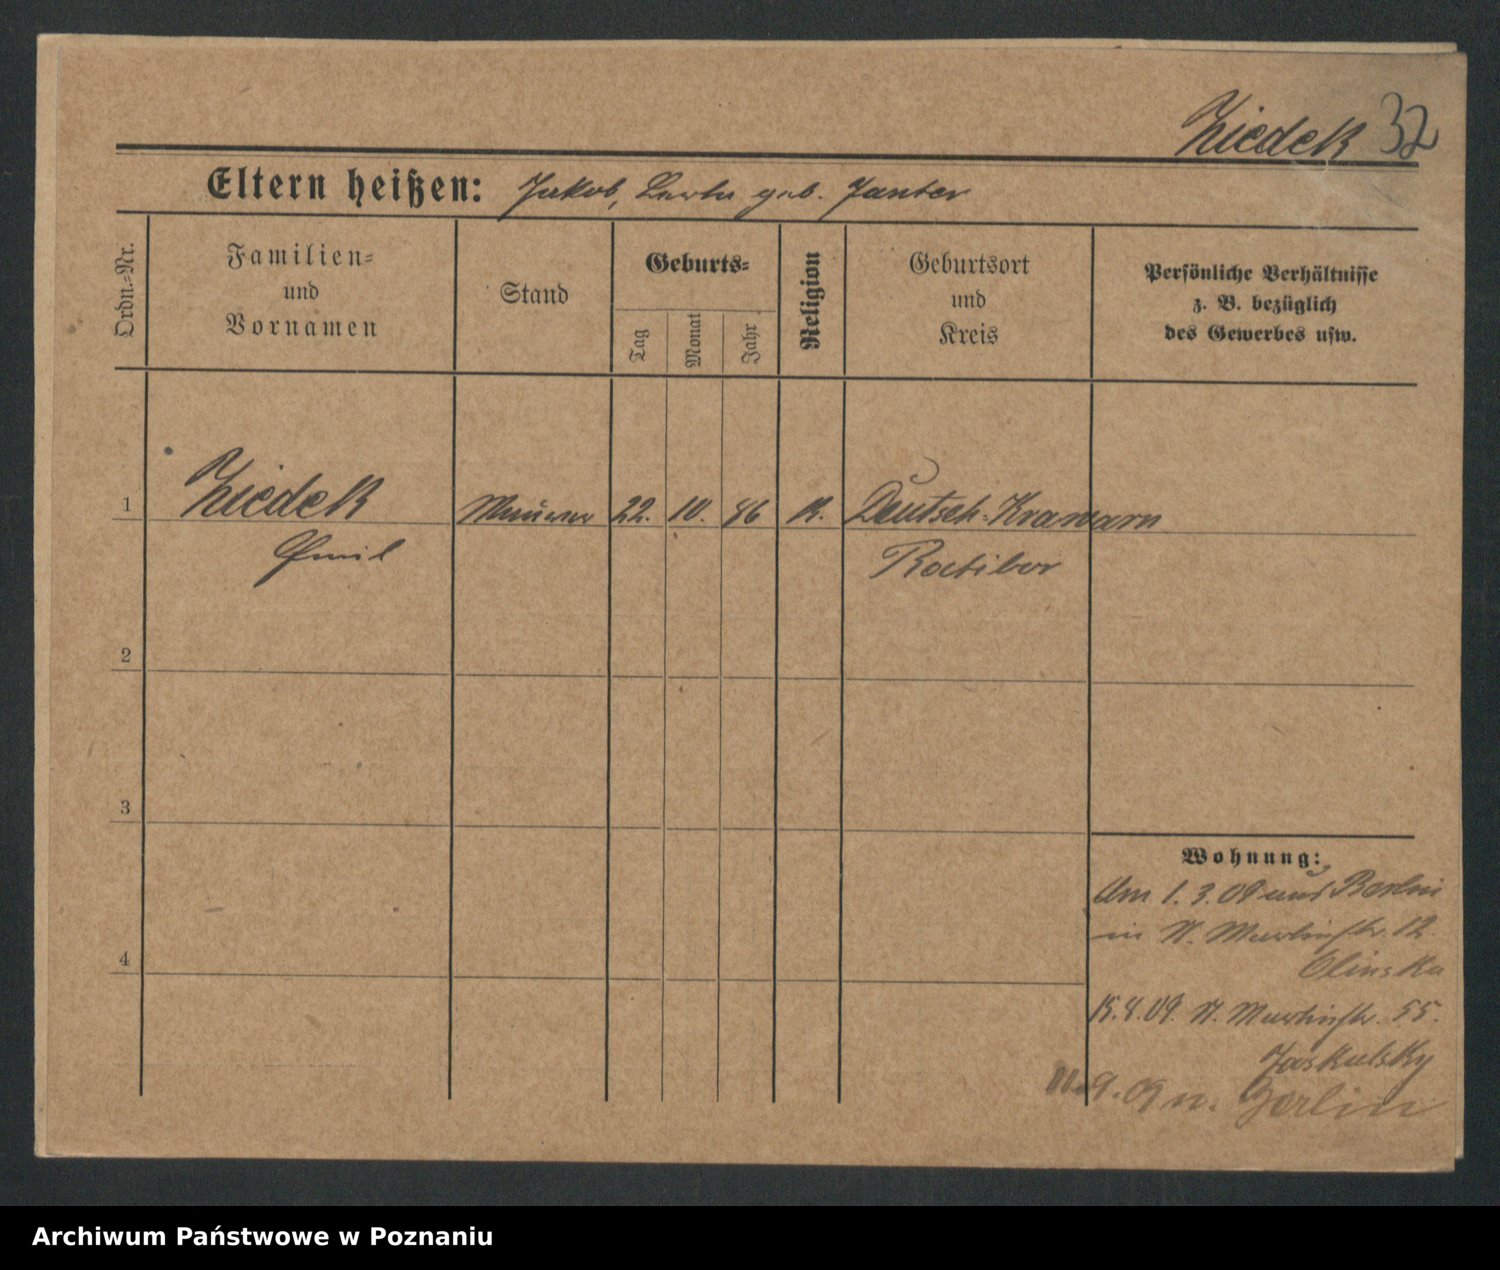 Ziedek 32
Eltern heißen: Jakob, geb. Janter
Ordn.-Nr.
Familien-
und
Vornamen
Stand
Geburts-
Tag
Monat
Jahr
Religion
Geburtsort
und
Kreis
Persönliche Verhältnisse
z. B. bezüglich
des Gewerbes usw.
1 Ziedek Maurer 22. 10. 86 K. Deutsch-Krawarn
Emil Ratibor
2
3
4
Wohnung:
Am 1. 3. 09 aus Berlin
in St. Martinstr. 12.
Olinska
15.4.09. St. Martinstr. 55.
Jaskulsky
11.9.09 n. Berlin
Archiwum Państwowe w Poznaniu